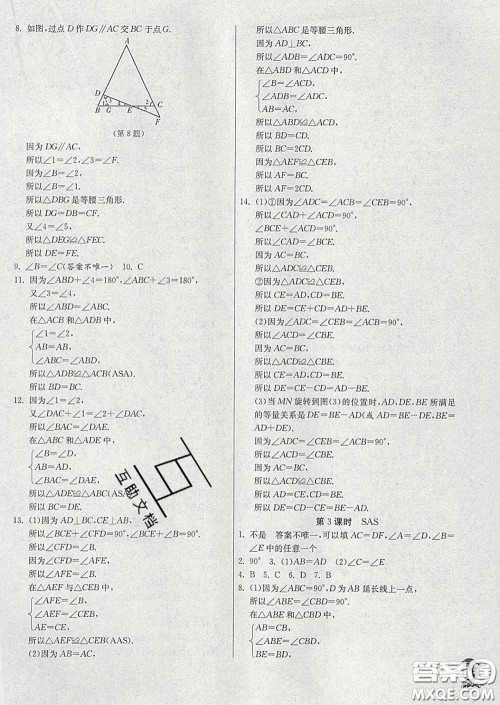 8. 如图,过点 D 作 DG∥AC 交 BC 于点 G.
A
D
B G E C
F
(第 8 题)
因为 DG∥AC,
所以∠1=∠2,∠3=∠F.
因为∠B=∠2,
所以∠B=∠1.
所以△DBG 是等腰三角形.
所以 DG=DB=CF.
又∠4=∠5,
所以△DEG≌△FEC.
所以 DE=FE.
9. ∠B=∠C(答案不唯一) 10. C
11. 因为∠ABD+∠4=180°,∠ABC+∠3=180°,
又∠3=∠4,
所以∠ABD=∠ABC.
在△ACB 和△ADB 中,
∠1=∠2,
AB=AB,
∠ABC=∠ABD,
所以△ACB≌△ADB(ASA).
所以 BD=BC.
12. 因为∠1=∠2,
又∠DAC+∠1=∠2+∠DAC,
所以∠BAC=∠DAE.
在△ABC 和△ADE 中,
∠B=∠D,
AB=AD,
∠BAC=∠DAE,
所以△ADE≌△ABC(ASA).
所以 BC=DE.
13. (1)因为 AD⊥BC,CE⊥AB,
所以∠BCE+∠CFD=90°,∠BCE+∠B=90°.
所以∠CFD=∠B.
因为∠CFD=∠AFE,
所以∠AFE=∠B.
在△AEF 与△CEB 中,
∠AFE=∠B,
∠AEF=∠CEB,
AE=CE,
所以△AEF≌△CEB(AAS).
(2)因为 AB=AC,
所以△ABC 是等腰三角形.
因为 AD⊥BC,
所以∠ADB=∠ADC=90°.
在△ABD 和△ACD 中,
∠B=∠ACD,
∠ADB=∠ADC,
AB=AC,
所以△ABD≌△ACD.
所以 BD=CD.
所以 BC=2CD.
因为△AEF≌△CEB,
所以 AF=BC.
所以 AF=2CD.
14. (1)①因为∠ADC=∠ACB=∠CEB=90°,
所以∠CAD+∠ACD=90°,
∠BCE+∠ACD=90°.
所以∠CAD=∠BCE.
因为 AC=BC,
所以△ADC≌△CEB.
②因为△ADC≌△CEB,
所以 CE=AD,CD=BE.
所以 DE=CE+CD=AD+BE.
(2)因为∠ADC=∠CEB=∠ACB=90°,
所以∠ACD=∠CBE.
因为 AC=BC,
所以△ACD≌△CBE.
所以 CE=AD,CD=BE.
所以 DE=CE-CD=AD-BE.
(3)当 MN 旋转到图(3)的位置时,AD,DE,BE 所满足
的等量关系是 DE=BE-AD(或 AD=BE-DE,BE=
AD+DE).
因为∠ADC=∠CEB=∠ACB=90°,
所以∠ACD=∠CBE.
因为 AC=BC,
所以△ACD≌△CBE.
所以 AD=CE,CD=BE.
所以 DE=CD-CE=BE-AD.
第 3 课时 SAS
1. 不是 答案不唯一,可以填 AC=DF,∠A=∠D,∠B=
∠E 中的任意一个
2. 90° 3. (1)AB=AD (2)∠ACB=∠ACD
4. B 5. C 6. D 7. B
8. (1)因为∠ABC=90°,D 为 AB 延长线上一点,
所以∠ABE=∠CBD=90°.
在△ABE 和△CBD 中,
AB=CB,
∠ABE=∠CBD,
BE=BD,
互助文档
答案圈
MXQE.COM